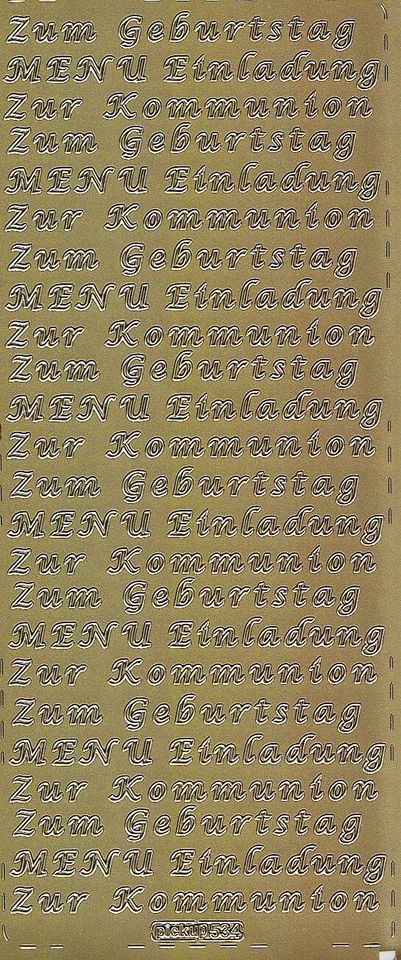 Zum Geburtstag
MENU Einladung
Zur Kommunion
Zum Geburtstag
MENU Einladung
Zur Kommunion
Zum Geburtstag
MENU Einladung
Zur Kommunion
Zum Geburtstag
MENU Einladung
Zur Kommunion
Zum Geburtstag
MENU Einladung
Zur Kommunion
Zum Geburtstag
MENU Einladung
Zur Kommunion
Zum Geburtstag
MENU Einladung
Zur Kommunion
Zum Geburtstag
MENU Einladung
Zur Kommunion
pickup 534